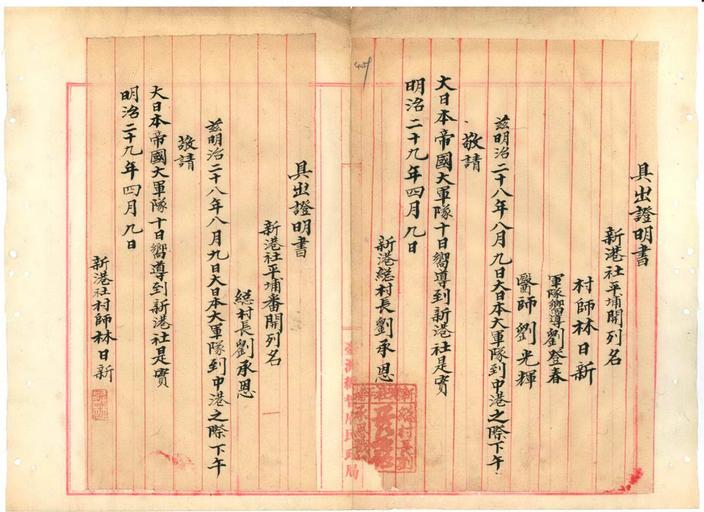 具出證明書
新港社平埔開列名
村師林日新
軍隊嚮導劉登春
醫師劉光輝
茲明治二十八年八月九日大日本大軍隊到中港之際下午
敬請
大日本帝國大軍隊十日嚮導到新港社是實
明治二十九年四月九日
新港總村長劉承恩
臺灣總督府民政局
具出證明書
新港社平埔番開列名
總村長劉承恩
茲明治二十八年八月九日大日本大軍隊到中港之際下午
敬請
大日本帝國大軍隊十日嚮導到新港社是實
明治二十九年四月九日
新港社村師林日新